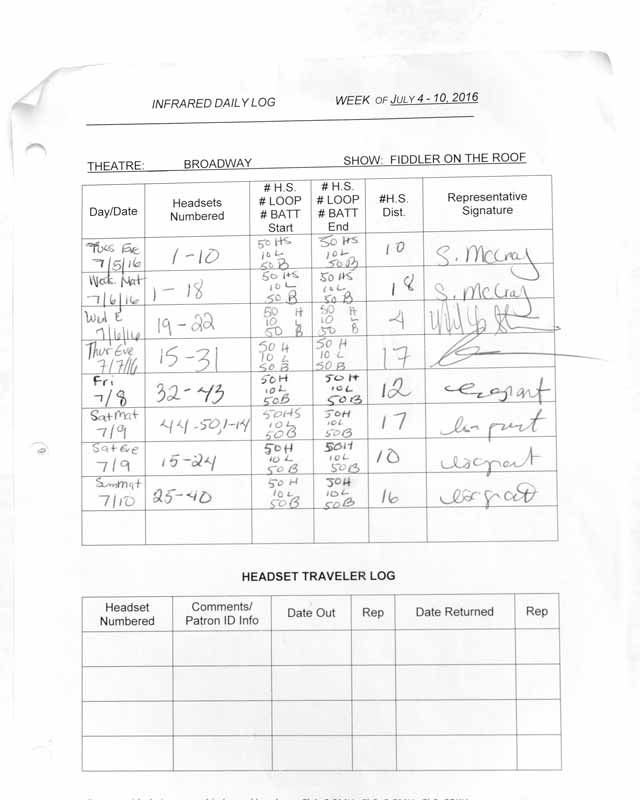 INFRARED DAILY LOG WEEK OF JULY 4 - 10, 2016
THEATRE: BROADWAY SHOW: FIDDLER ON THE ROOF
Day/Date Headsets Numbered # H.S. # LOOP # BATT Start # H.S. # LOOP # BATT End #H.S. Dist. Representative Signature
Tues Eve 7/5/16 1-10 50 HS 10 L 50 B 50 HS 10 L 50 B 10 S. McCray
Weds. Mat 7/6/16 1-18 50 HS 10 L 50 B 50 HS 10 L 50 B 18 S. McCray
Wed E 7/6/16 19-22 50 H 10 L 50 B 50 H 10 L 50 B 4
Thur Eve 7/7/16 15-31 50 H 10 L 50 B 50 H 10 L 50 B 17
Fri 7/8 32-43 50H 10L 50B 50H 10L 50B 12
Sat Mat 7/9 44-50,1-14 50HS 10L 50B 50H 10L 50B 17
Sat Eve 7/9 15-24 50H 10L 50B 50H 10L 50B 10
Sun Mat 7/10 25-40 50H 10L 50B 50H 10L 50B 16
HEADSET TRAVELER LOG
Headset Numbered Comments/ Patron ID Info Date Out Rep Date Returned Rep